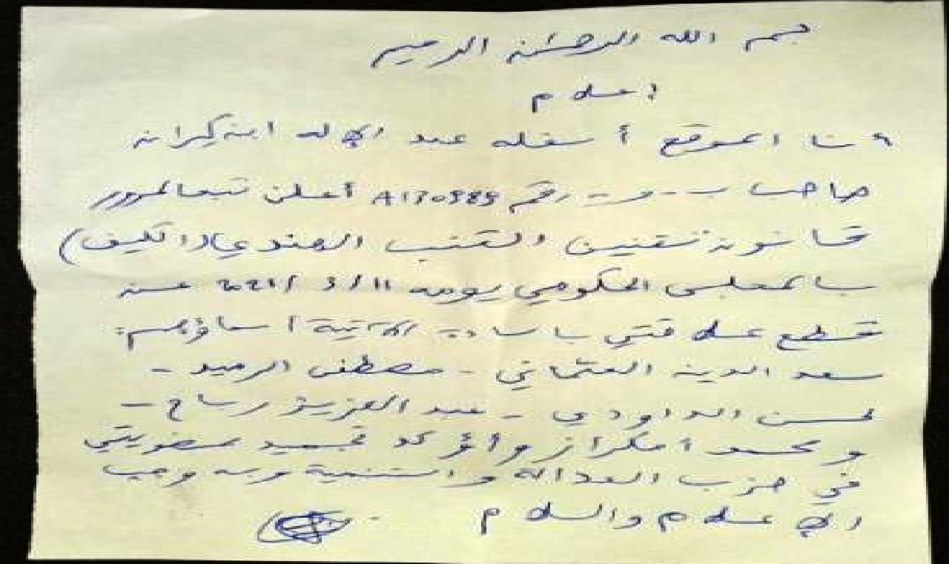 بسم الله الرحمن الرحيم
إعلام
أنا الموقع أسفله عبد الإله ابن كيران
صاحب ب-و-ت رقم A130989 أعلن تبعا لمرور
قانون تقنين القنب الهندي (الكيف)
بالمجلس الحكومي يومه 11/3/2021 عن
قطع علاقتي بالسادة الآتية أسماؤهم:
سعد الدين العثماني - مصطفى الرميد -
لحسن الداودي - عبد العزيز رباح -
ومحمد أمكراز وأؤكد تجميد عضويتي
في حزب العدالة والتنمية وبه وجب
الإعلام والسلام